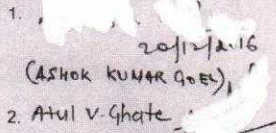 1.
20/12/2016
(ASHOK KUMAR GOEL)
2. Atul V. Ghate